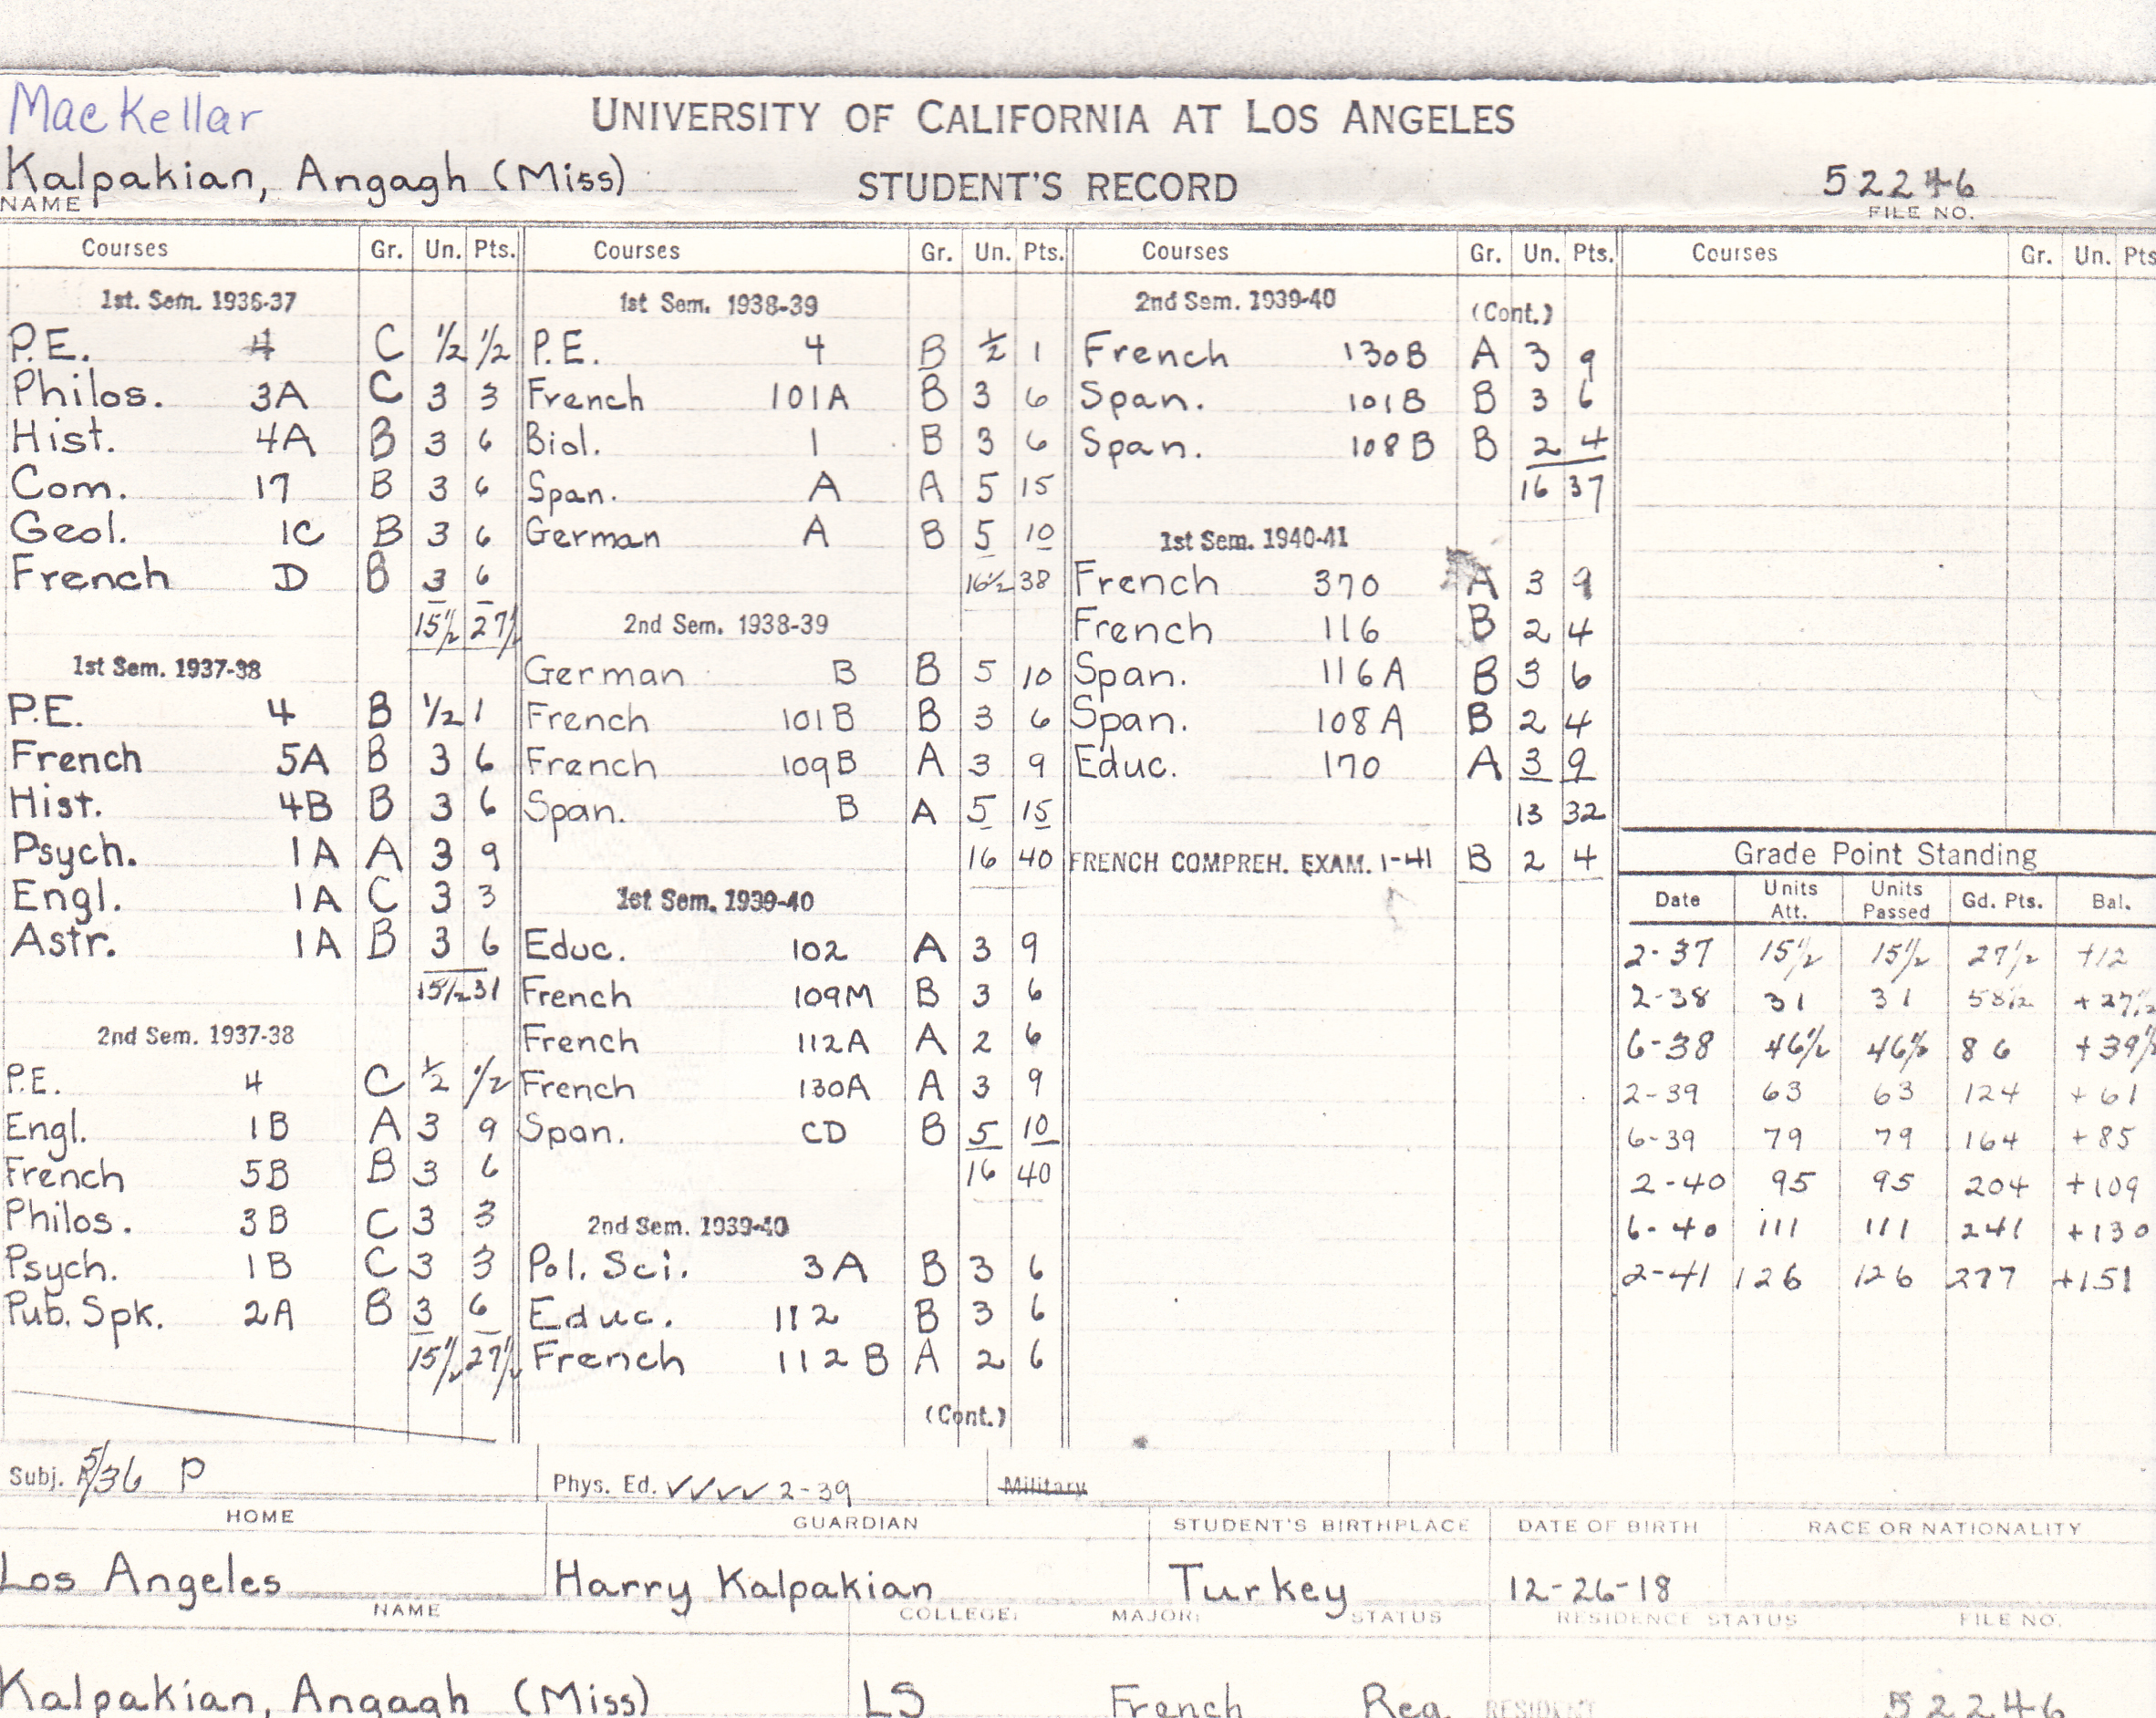 MacKellar
UNIVERSITY OF CALIFORNIA AT LOS ANGELES
Kalpakian, Angagh (Miss)
NAME
STUDENT'S RECORD
52246
FILE NO.
Courses Gr. Un. Pts.
1st. Sem. 1936-37
P.E. 4 C 1/2 1/2
Philos. 3A C 3 3
Hist. 4A B 3 6
Com. 17 B 3 6
Geol. 1C B 3 6
French D B 3 6
15 1/2 27 1/2
1st Sem. 1937-38
P.E. 4 B 1/2 1
French 5A B 3 6
Hist. 4B B 3 6
Psych. 1A A 3 9
Engl. 1A C 3 3
Astr. 1A B 3 6
15 1/2 31
2nd Sem. 1937-38
P.E. 4 C 1/2 1/2
Engl. 1B A 3 9
French 5B B 3 6
Philos. 3B C 3 3
Psych. 1B C 3 3
Pub. Spk. 2A B 3 6
15 1/2 27 1/2
Courses Gr. Un. Pts.
1st Sem. 1938-39
P.E. 4 B 1/2 1
French 101A B 3 6
Biol. 1 B 3 6
Span. A A 5 15
German A B 5 10
16 1/2 38
2nd Sem. 1938-39
German B B 5 10
French 101B B 3 6
French 109B A 3 9
Span. B A 5 15
16 40
1st Sem. 1939-40
Educ. 102 A 3 9
French 109M B 3 6
French 112A A 2 6
French 130A A 3 9
Span. CD B 5 10
16 40
2nd Sem. 1939-40
Pol. Sci. 3A B 3 6
Educ. 112 B 3 6
French 112B A 2 6
(Cont.)
Courses Gr. Un. Pts.
2nd Sem. 1939-40 (Cont.)
French 130B A 3 9
Span. 101B B 3 6
Span. 108B B 2 4
16 37
1st Sem. 1940-41
French 370 A 3 9
French 116 B 2 4
Span. 116A B 3 6
Span. 108A B 2 4
Educ. 170 A 3 9
13 32
FRENCH COMPREH. EXAM. 1-41 B 2 4
Courses Gr. Un. Pts
Grade Point Standing
Date Units Att. Units Passed Gd. Pts. Bal.
2-37 15 1/2 15 1/2 27 1/2 +12
2-38 31 31 58 1/2 +27 1/2
6-38 46 1/2 46 1/2 86 +39 1/2
2-39 63 63 124 +61
6-39 79 79 164 +85
2-40 95 95 204 +109
6-40 111 111 241 +130
2-41 126 126 277 +151
Subj. A 5/36 P
Phys. Ed. ✓✓✓✓ 2-39
Military
HOME GUARDIAN STUDENT'S BIRTHPLACE DATE OF BIRTH RACE OR NATIONALITY
Los Angeles Harry Kalpakian Turkey 12-26-18
NAME COLLEGE: MAJOR: STATUS RESIDENCE STATUS FILE NO.
Kalpakian, Angagh (Miss) LS French Reg RESIDENT 52246